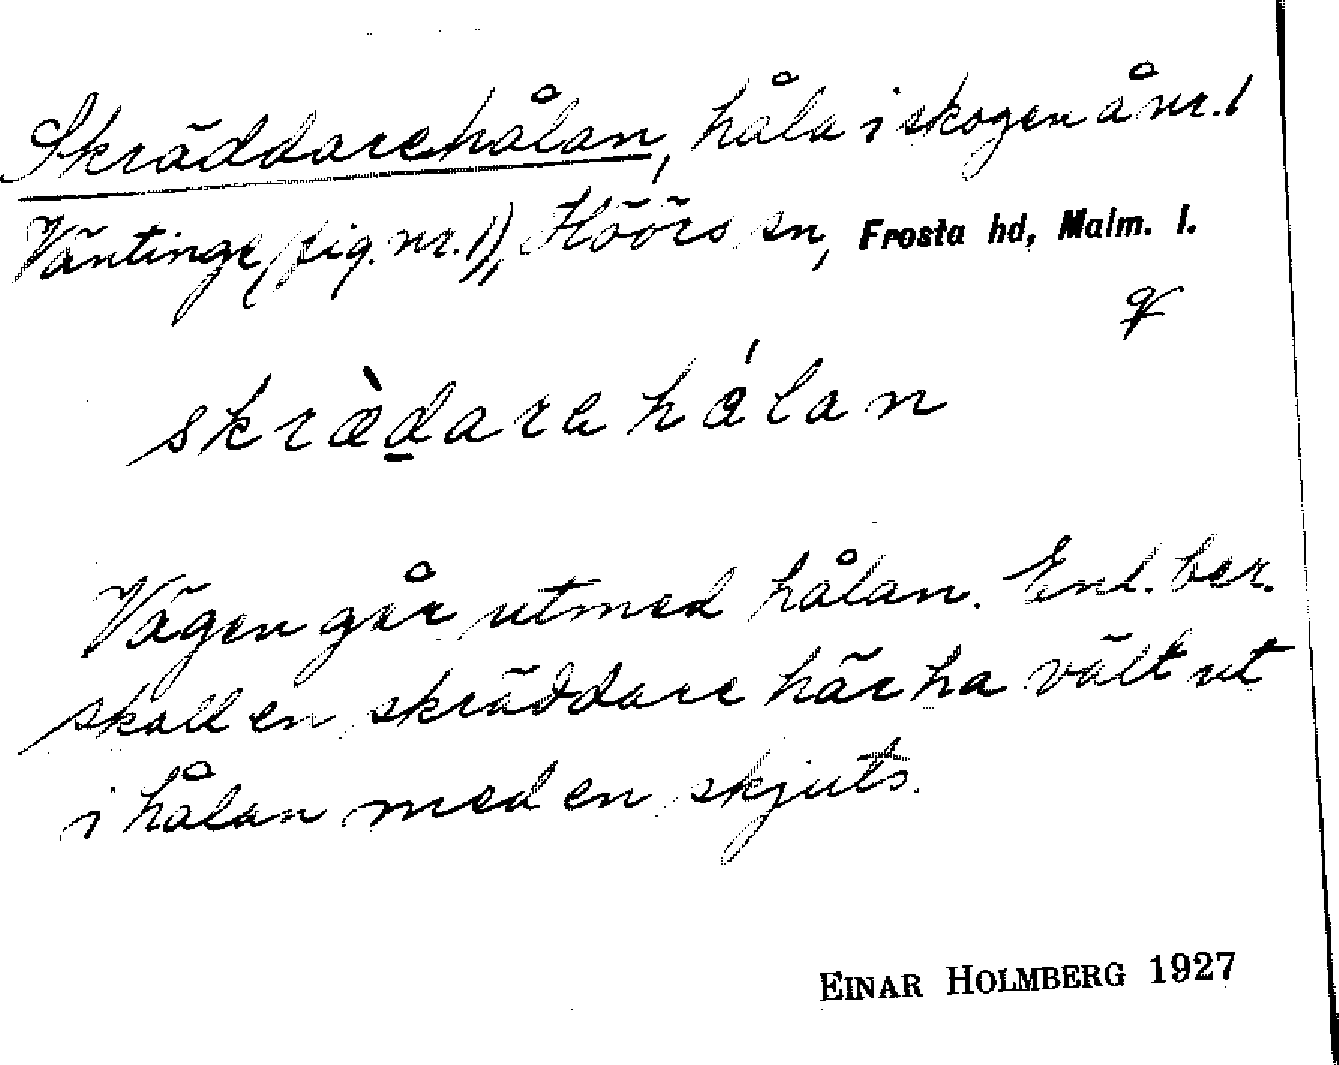 Skräddarehålan, håla i skogen å nr. 1
Väntinge (fig. nr. 1), Höörs sn, Frosta hd, Malm. l.
skræ̀darehálan
Vägen går utmed hålan. Enl. ber.
skall en skräddare här ha vält ut
i hålan med en skjuts.
EINAR HOLMBERG 1927